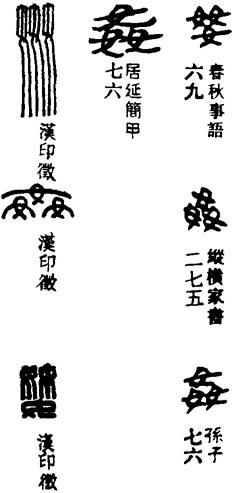 姦
春秋事語
六九
姦
縱橫家書
二七五
姦
孫子
七六
姦
居延簡甲
七六
漢印徵
漢印徵
漢印徵